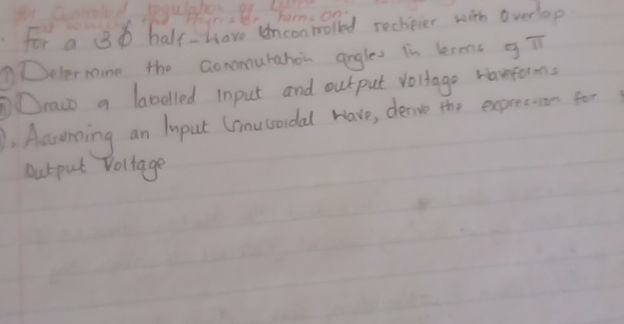 For a 3ϕ half-wave Uncontrolled rectifier with Overlap
① Determine the Commutation angles in terms of π
② Draw a labelled input and output voltage waveforms
Assuming an Input Sinusoidal Wave, derive the expression for
output Voltage